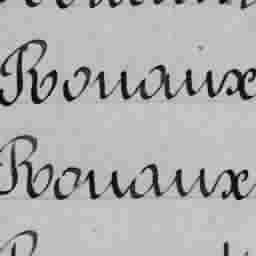 Rouaux
Rouaux